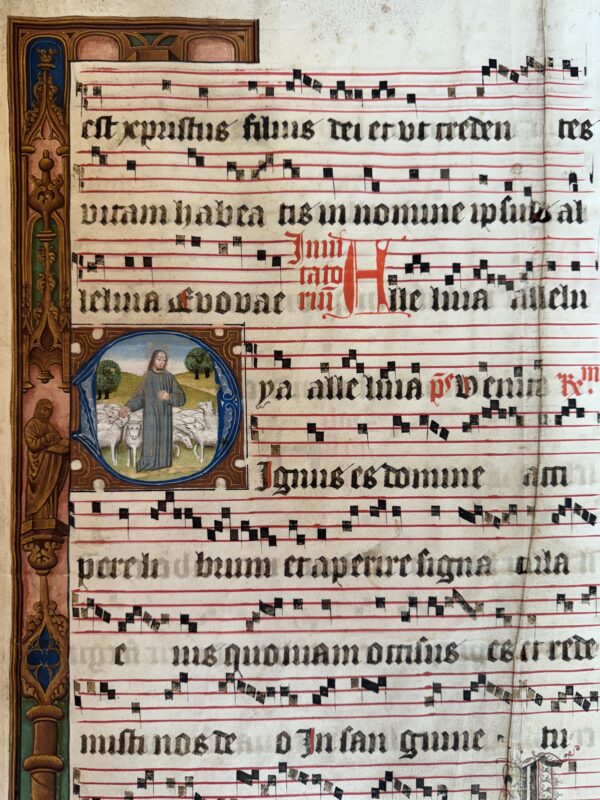 est xpristus filius dei et ut creden tes
vitam habea tis in nomine ipsius al
leluia Evovae Invitatoriū Alle luia allelu
ya alle luia ps Venite Rm
Dignus es domine acci
pere li brum et aperire signa cula
e ius quoniam occisus es et rede
misti nos de o In san guine tu